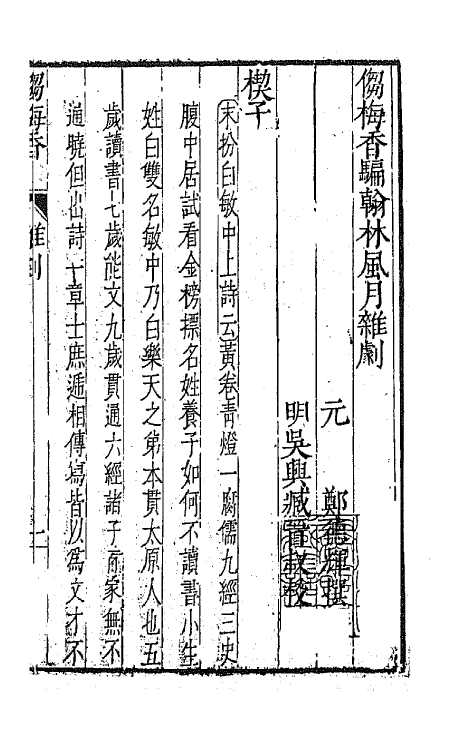 㑳梅香騙翰林風月雜劇
元　鄭德輝撰
明吳興臧晉叔校
楔子
末扮白敏中上詩云黃卷靑燈一腐儒九經三史
腹中居試看金榜標名姓養子如何不讀書小生
姓白雙名敏中乃白樂天之弟本貫太原人也五
歲讀書七歲能文九歲貫通六經諸子百家無不
通曉但出詩一章士庶遞相傳寫皆以爲文才不
㑳梅香
雜劇
一